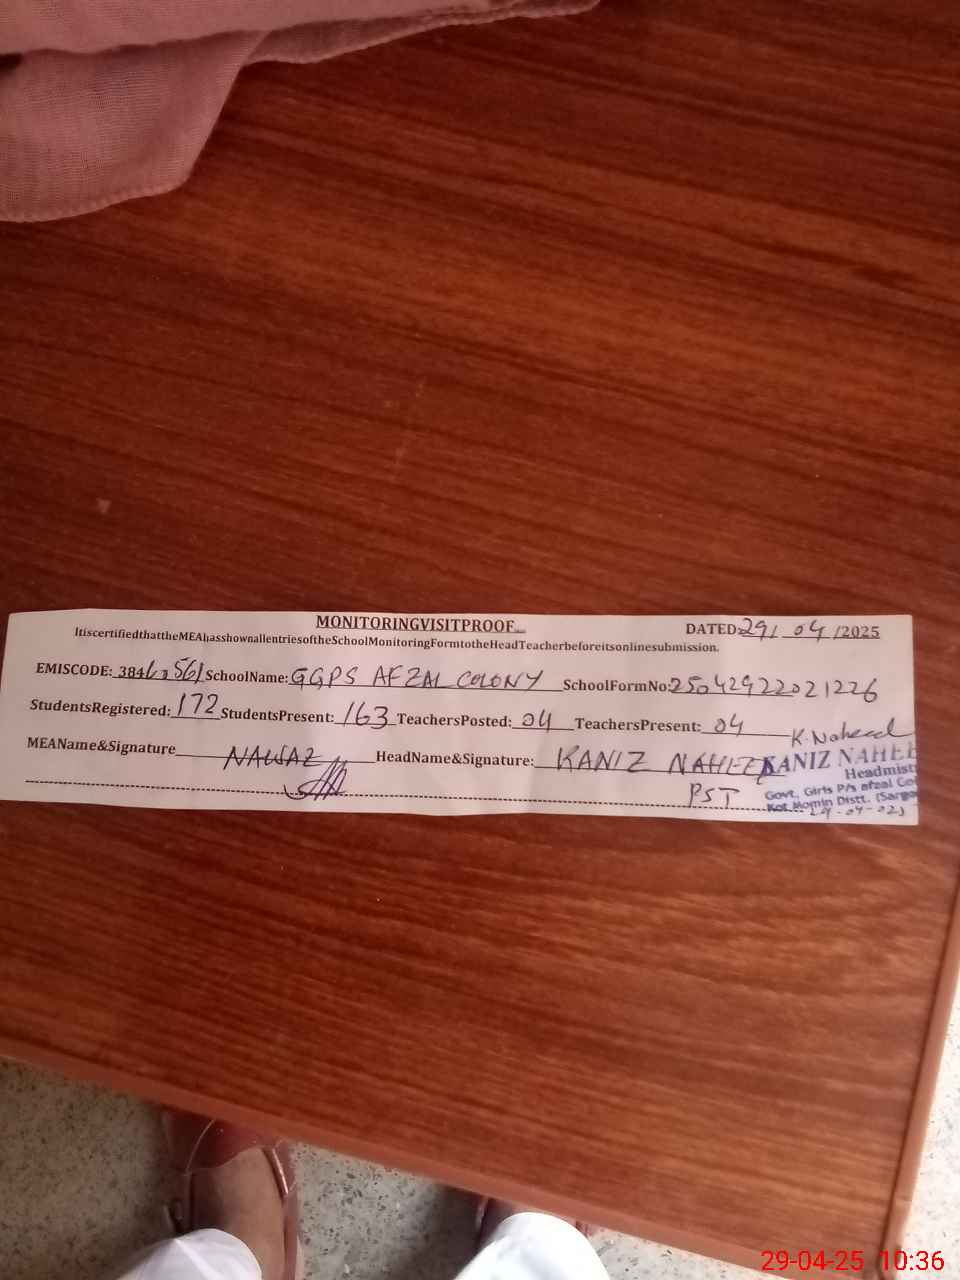 MONITORINGVISITPROOF
DATED:29/04/2025
ItiscertifiedthattheMEAhasshownallentriesoftheSchoolMonitoringFormtotheHeadTeacherbeforeitsonlinesubmission.
EMISCODE: SchoolName: GGPS AFZAL COLONY SchoolFormNo:25042922021226
StudentsRegistered: 172 StudentsPresent: 163 TeachersPosted: 04 TeachersPresent: 04
K. Naheed
MEAName&Signature NAWAZ HeadName&Signature: KANIZ NAHEED
KANIZ NAHEE
Headmist
PST
Govt. Girls P/s afzal Co
Kot Momin Distt. (Sargo
29-04-25 10:36